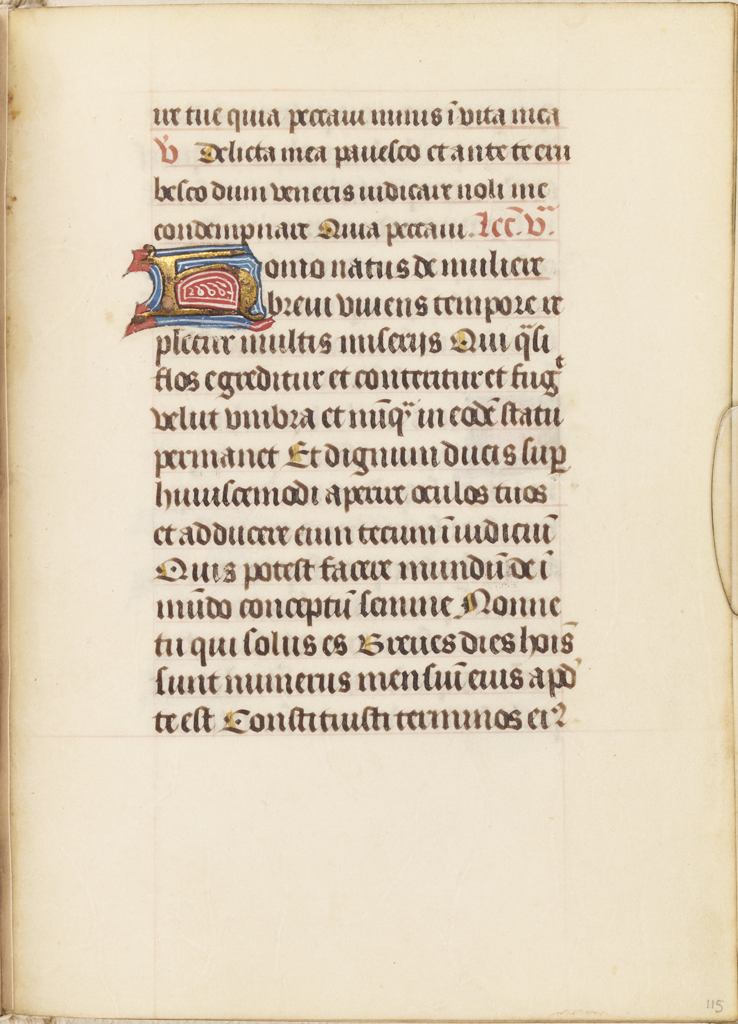 ire tue quia peccaui nimis ī vita mea
V̄ Delicta mea pauesco et ante te eru
besco dum veneris iudicare noli me
condempnare Quia peccaui. Lcc̄. va.
Homo natus de muliere
breui viuens tempore re
pletur multis miserijs Qui q̄si
flos egreditur et conteritur et fugt
velut vmbra et nūq̄ in eodē statu
permanet Et dignum ducis sup̱
huiuscemodi aperire oculos tuos
et adducere eum tecum ī iudiciū
Quis potest facere mundū de ī
mūdo conceptū semine Nonne
tu qui solus es Breues dies hoīs
sunt numerus mensuū eius apd̕
te est Constituisti terminos ei2
115